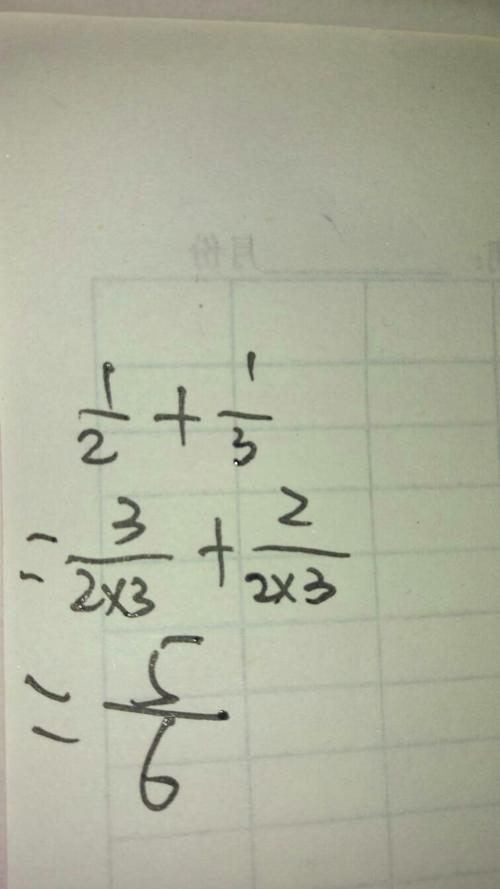 月份
1/2 + 1/3
= 3/(2×3) + 2/(2×3)
= 5/6